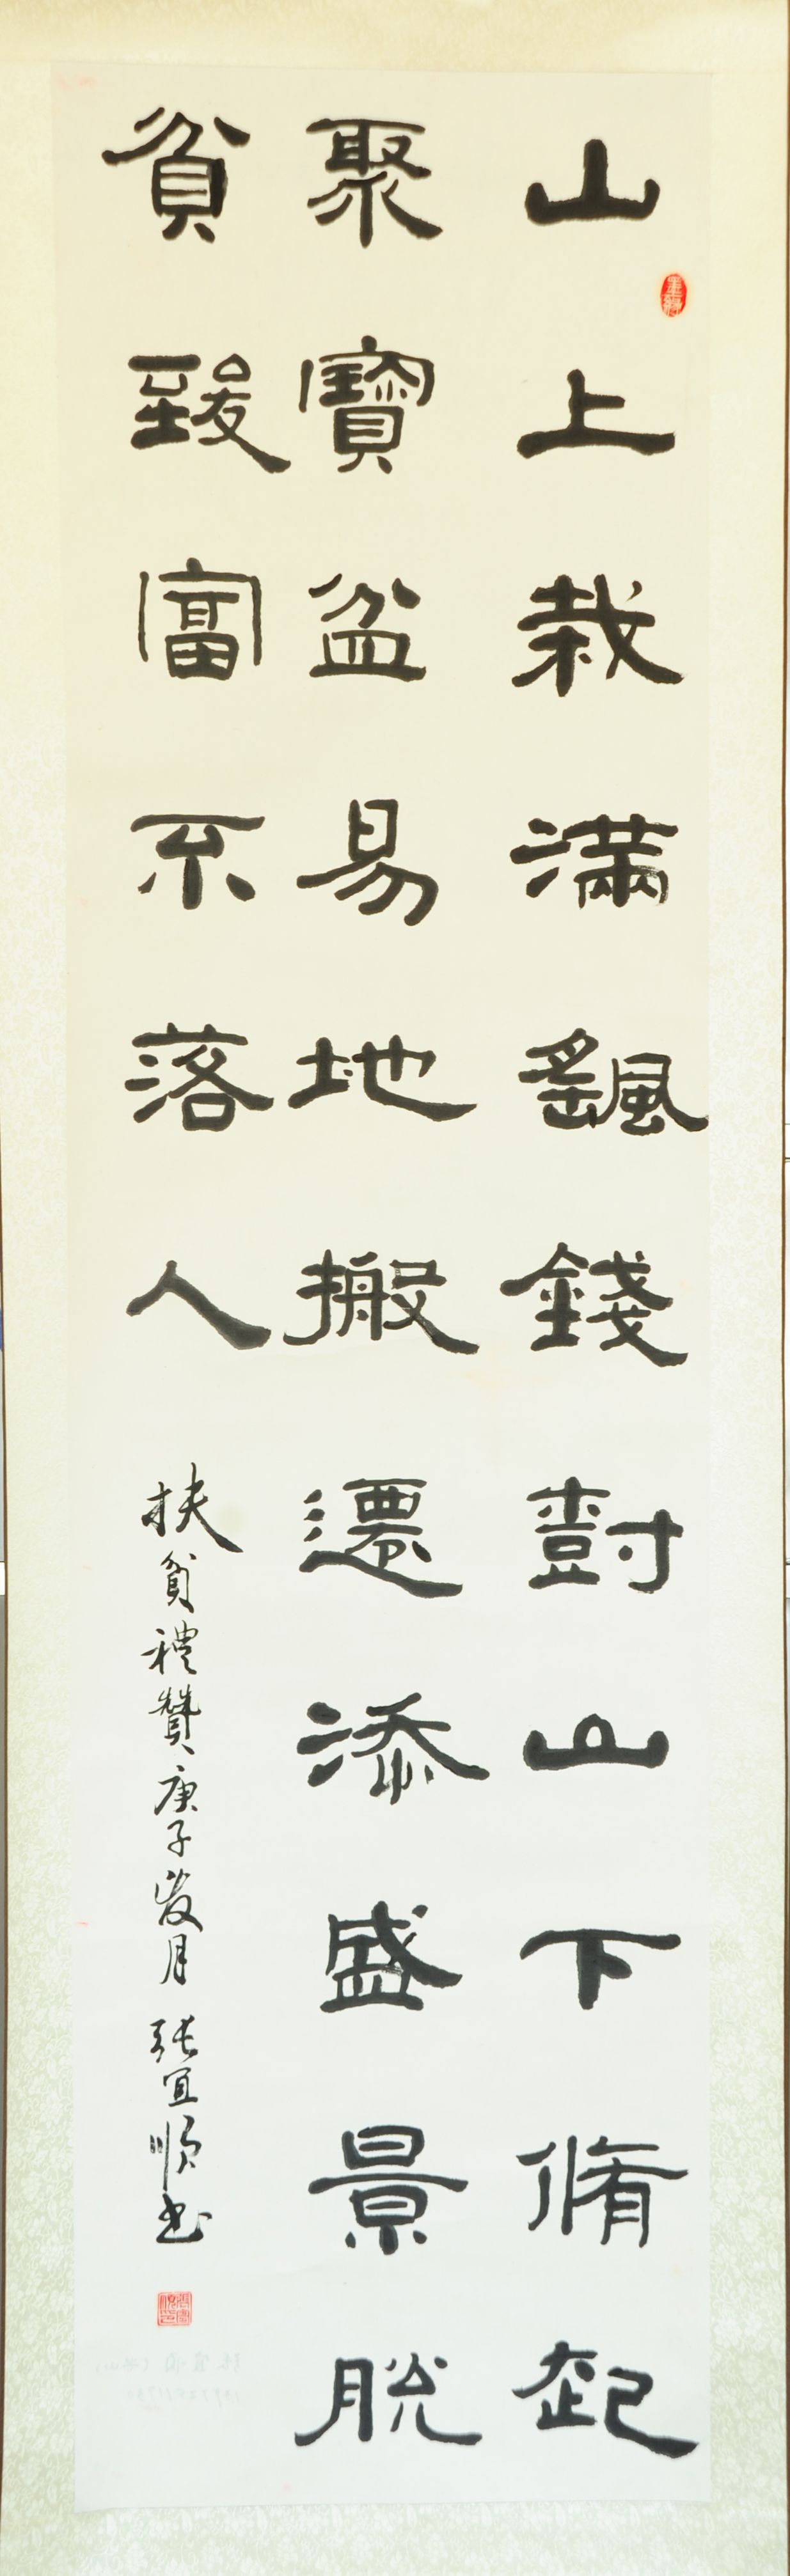 山上栽滿䬙錢樹山下脩起
聚寶盆易地搬遷添盛景脫
貧致富不落人
扶貧禮贊庚子歲月張宜順书